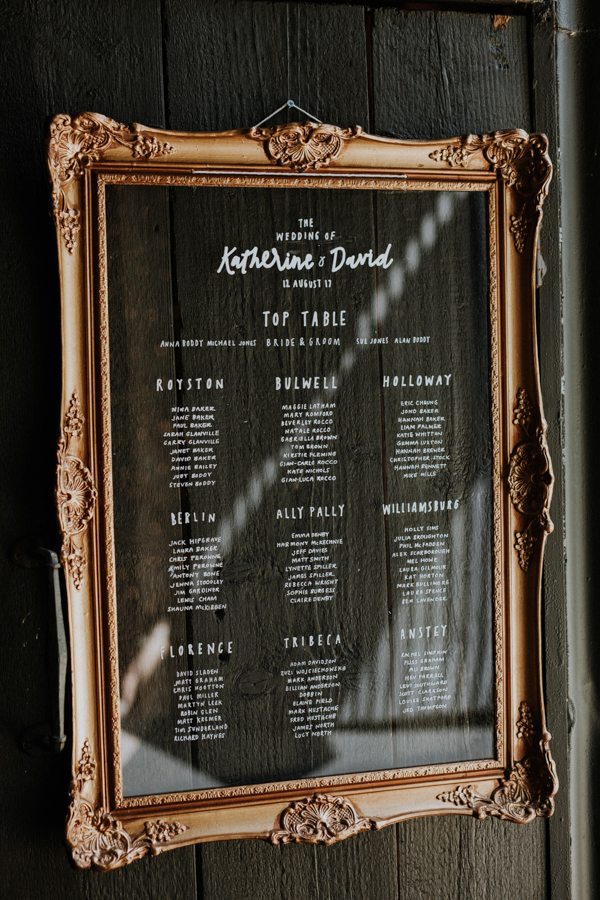 THE
WEDDING OF
Katherine & David
12 AUGUST 17
TOP TABLE
ANNA BODDY MICHAEL JONES BRIDE & GROOM SUE JONES ALAN BODDY
ROYSTON
NINA BAKER
JANE BAKER
PAUL BAKER
SARAH GLANVILLE
GARRY GLANVILLE
JANET BAKER
DAVID BAKER
ANNIE BAILEY
JUDY BODDY
STEVEN BODDY
BULWELL
MAGGIE LATHAM
MARY ROMFORD
BEVERLEY ROCCO
NATALE ROCCO
GABRIELLA BROWN
TOM BROWN
KIRSTIE FLEMING
GIAN-CARLO ROCCO
KATE NICHOLS
GIAN-LUCA ROCCO
HOLLOWAY
ERIC CHEUNG
JOHO BAKER
HANNAH BAKER
LIAM PALMER
KATIE WHITTON
GEMMA LUXTON
HANNAH BREWER
CHRISTOPHER STOCK
HANNAH BENNETT
MIKE WILLS
BERLIN
JACK HIPGRAVE
LAURA BAKER
CHRIS PEROWNE
EMILY PEROWNE
ANTONY BONE
JENNA STOODLEY
JIM GARDINER
LEWIS CHAM
SHAUNA McKIRGEN
ALLY PALLY
EMMA DENBY
HARMONY McKECHNIE
JEFF DAVIES
MATT SMITH
LYNETTE SPILLER
JAMES SPILLER
REBECCA WRIGHT
SOPHIE BURGESS
CLAIRE DENBY
WILLIAMSBURG
HOLLY SIMS
JULIA BROUGHTON
PHIL McFADDEN
ALEX SCARBOROUGH
MEL HOWE
LAURA GILMOUR
KAT HORTON
MARK BULLIMORE
LAURA SPENCE
BEN LAVENDER
FLORENCE
DAVID SLADEN
MATT GRAHAM
CHRIS HOTTON
PAUL MILLER
MARTYN LEEK
ROBIN GLEN
MATT KREMER
TIM SUNDERLAND
RICHARD HAYNES
TRIBECA
ADAM DAVIDSON
ZUZI WOJCIECHOWSKA
MARK ANDERSON
GILLIAN ANDERSON
DOBBIN
ELAINE FIELD
MARK HESTACHE
FRED HESTACHE
JAMES NORTH
LUCY NORTH
ANSTEY
RACHEL SIMPKIN
RUSS GRAHAM
ALI BROWN
BEV FARRELL
LEVI SOUTHWARD
SCOTT CLARKSON
LOUISE SHATFORD
JED THOMPSON